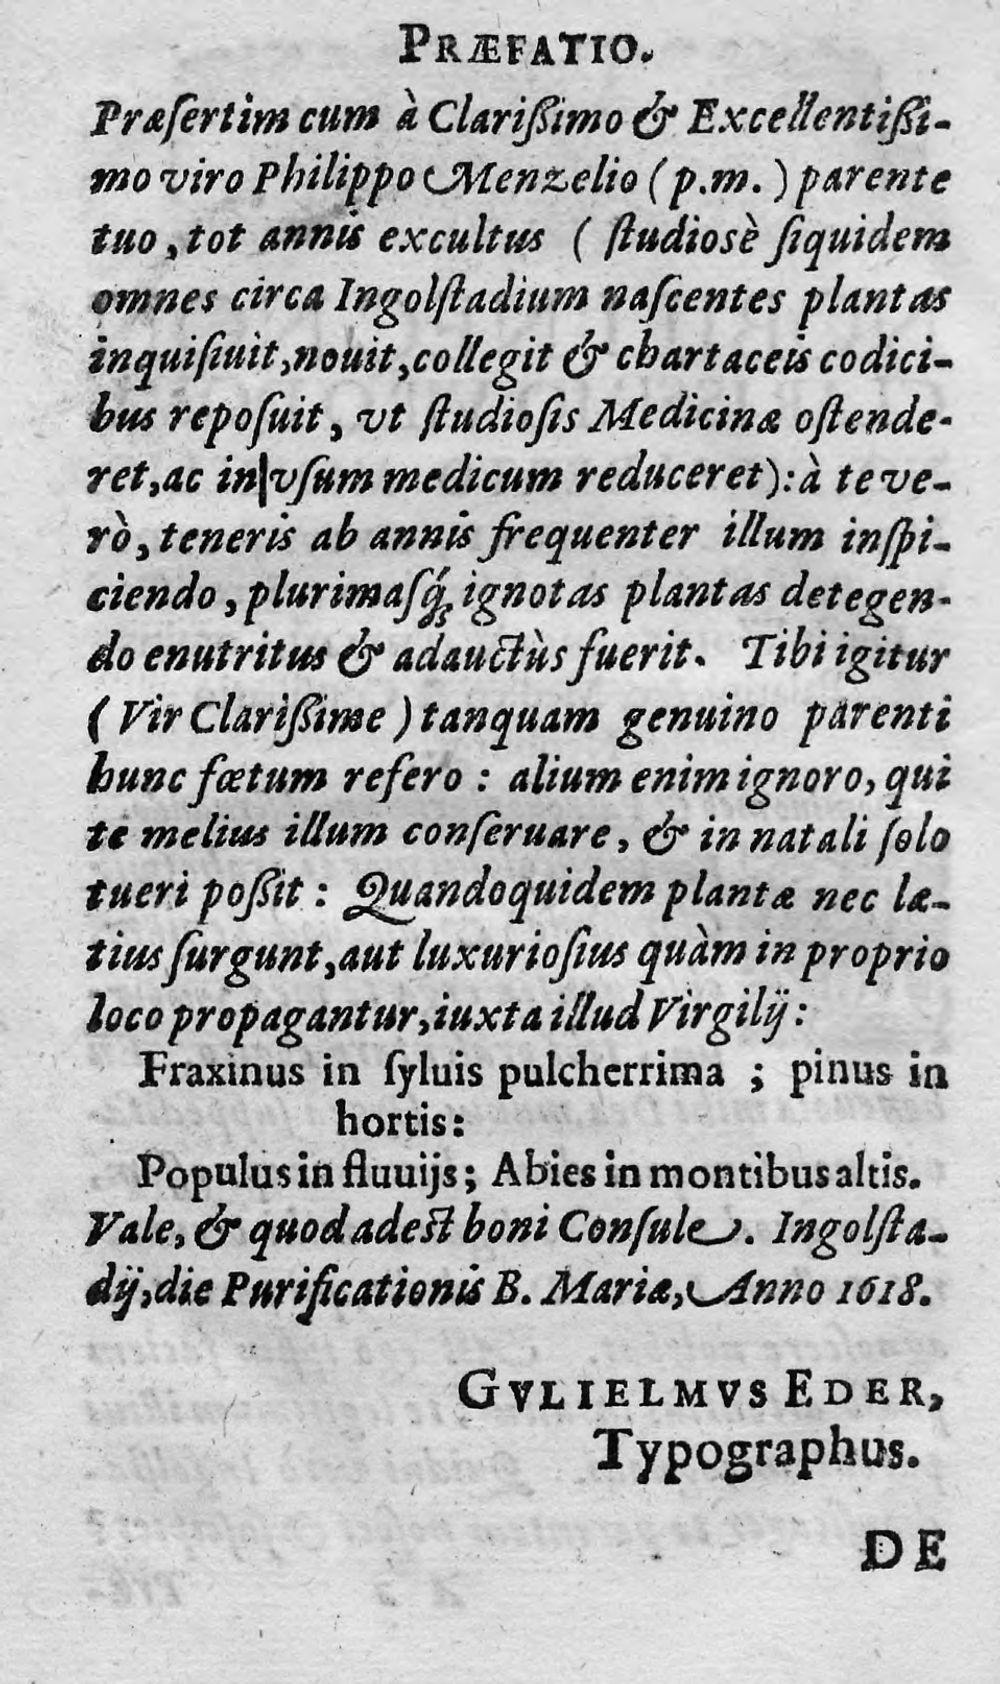 PRÆFATIO.
Præſertim cum à Clariſſimo & Excellentiſſi-
mo viro Philippo Menzelio (p.m.) parente
tuo, tot annis excultus (ſtudiosè ſiquidem
omnes circa Ingolſtadium naſcentes plantas
inquiſiuit, nouit, collegit & chartaceis codici-
bus repoſuit, vt ſtudioſis Medicinæ oſtende-
ret, ac in|vſum medicum reduceret): à te ve-
rò, teneris ab annis frequenter illum inſpi-
ciendo, plurimaſq́; ignotas plantas detegen-
do enutritus & adauctùs fuerit. Tibi igitur
(Vir Clariſſime) tanquam genuino parenti
hunc fœtum refero: alium enim ignoro, qui
te melius illum conſeruare, & in natali ſolo
tueri poſſit: Quandoquidem plantæ nec læ-
tius ſurgunt, aut luxurioſius quàm in proprio
loco propagantur, iuxta illud Virgilij:
Fraxinus in ſyluis pulcherrima; pinus in
hortis:
Populus in fluuijs; Abies in montibus altis.
Vale, & quod adest boni Conſule. Ingolſta-
dij, die Purificationis B. Mariæ, Anno 1618.
GVLIELMVS EDER,
Typographus.
DE